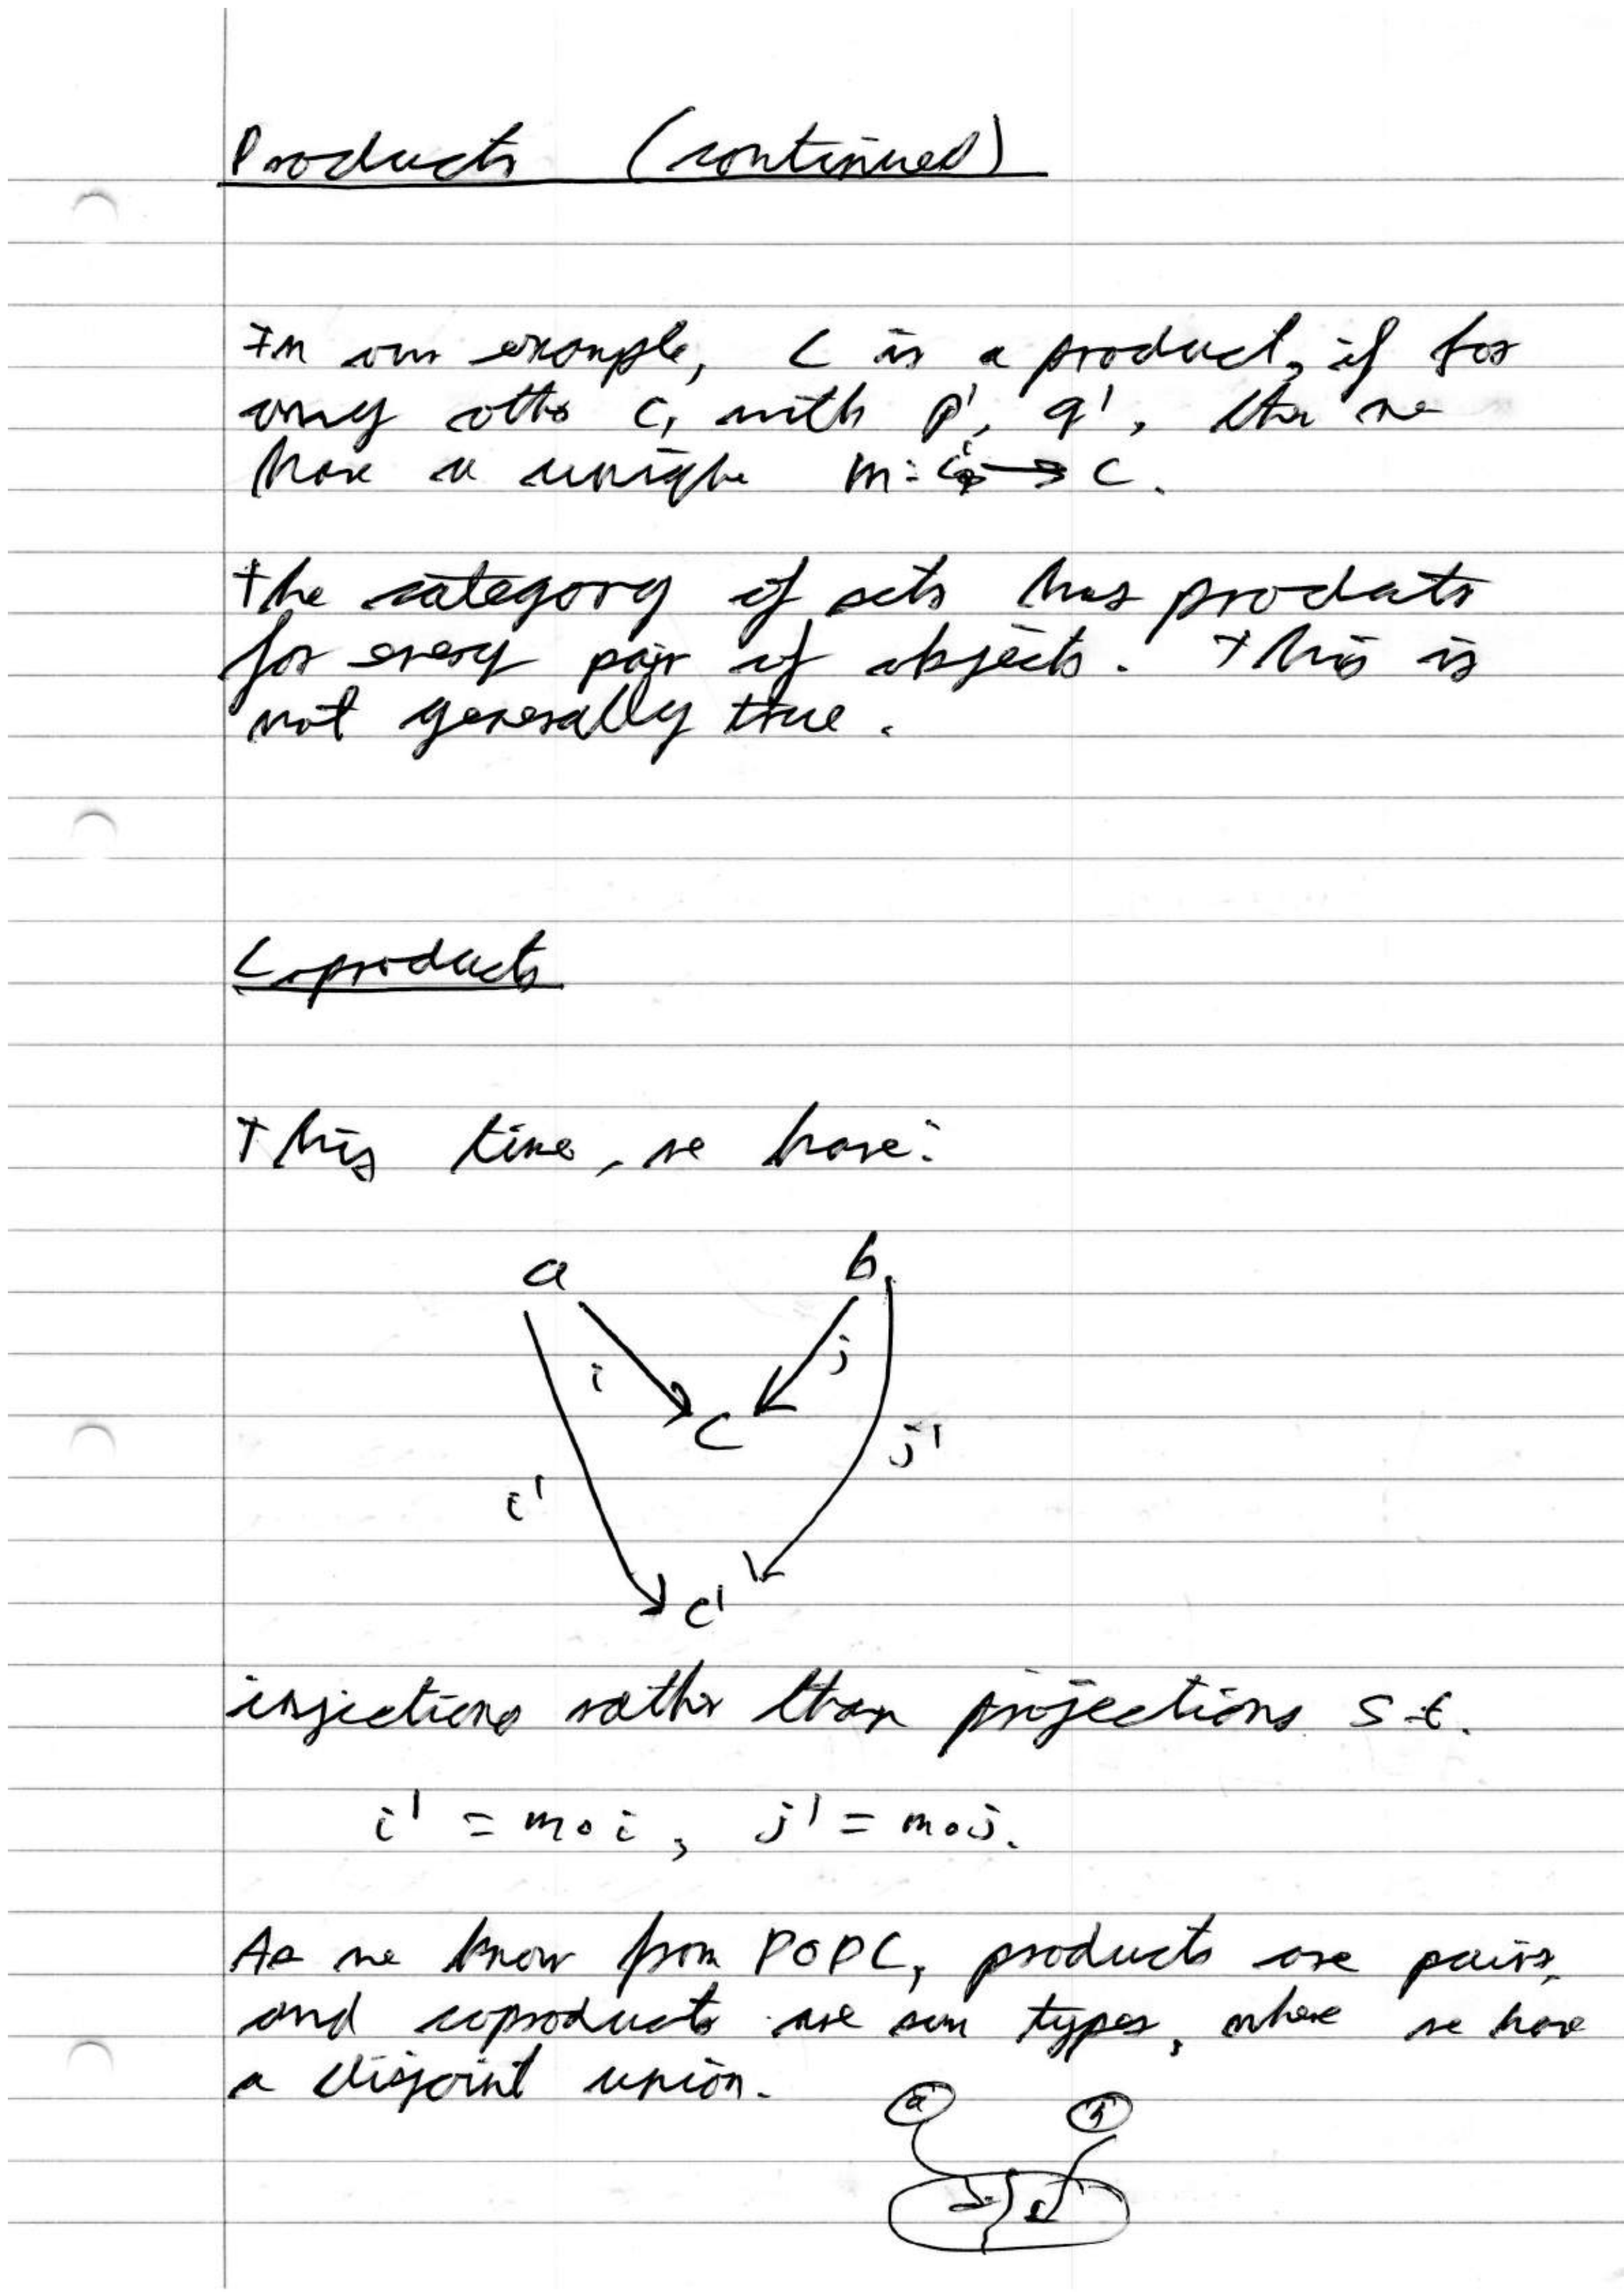 Products (continued)
In our example, C is a product, if for
any other C, with p', q', then we
have a unique m: → C.
The category of sets has products
for every pair of objects. This is
not generally true.
Coproducts
This time, we have:
a b
i j
C
i' j'
c'
injections rather than projections s.t.
i' = m∘i, j' = m∘j.
As we know from POPL, products are pairs,
and coproducts are sum types, where we have
a disjoint union.
a b